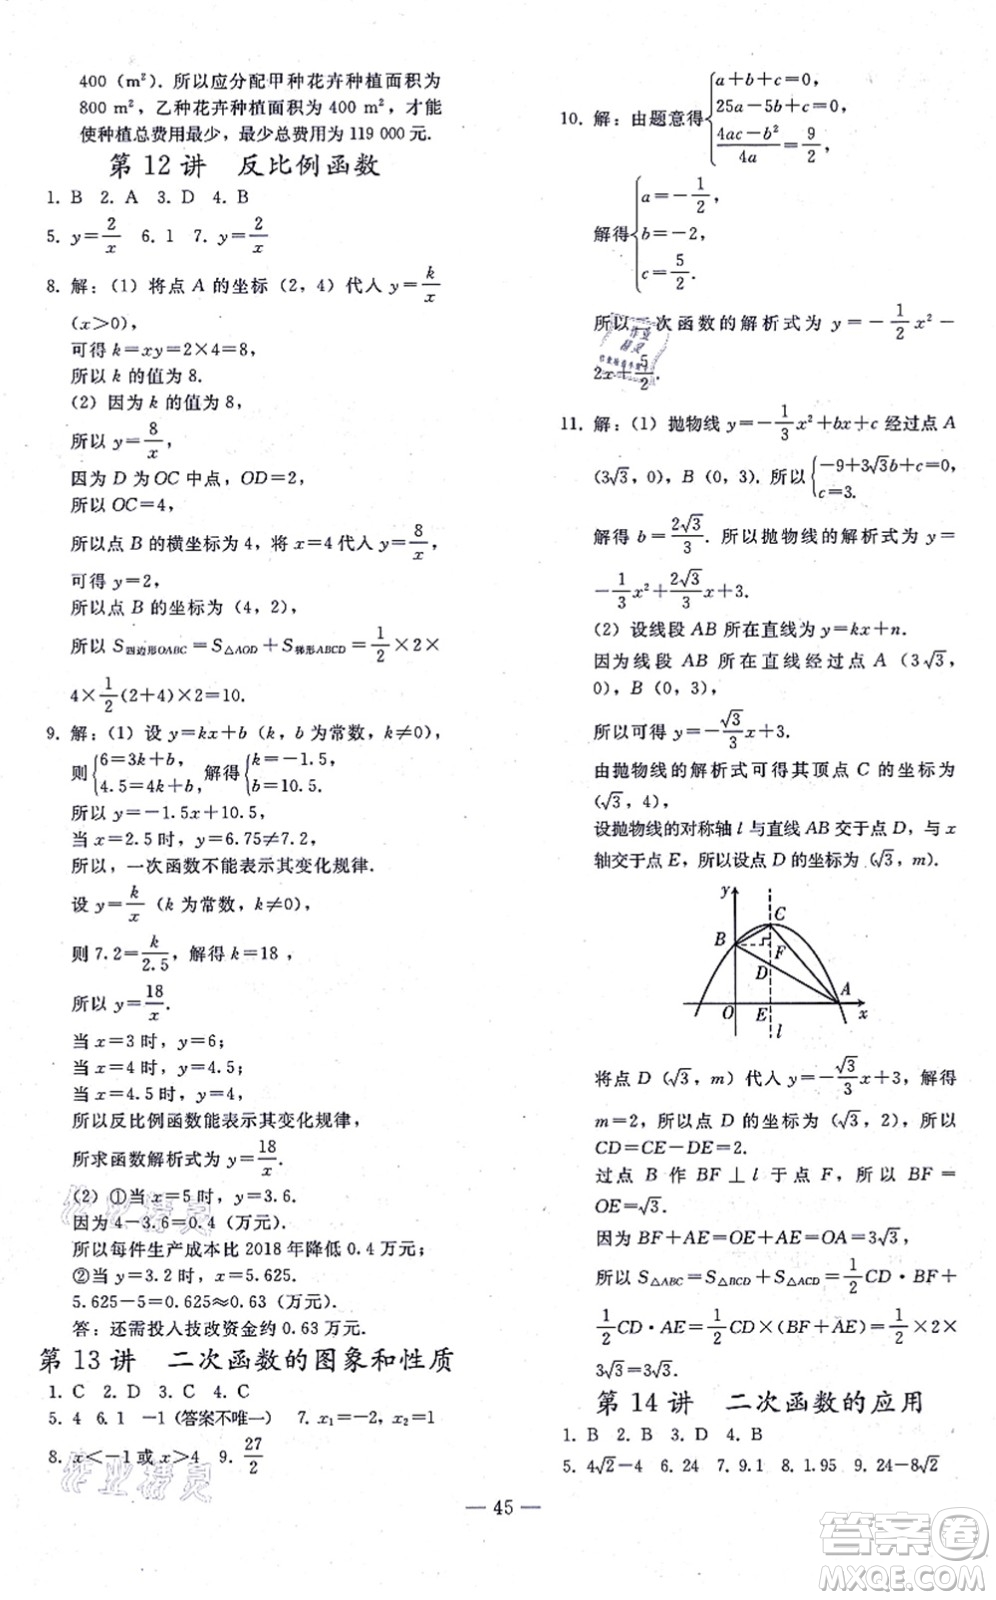 400 (m²). 所以应分配甲种花卉种植面积为
800 m², 乙种花卉种植面积为 400 m², 才能
使种植总费用最少, 最少总费用为 119 000 元.
第 12 讲 反比例函数
1. B 2. A 3. D 4. B
5. y=2/x 6. 1 7. y=2/x
8. 解: (1) 将点 A 的坐标 (2, 4) 代人 y=k/x
(x>0),
可得 k=xy=2×4=8,
所以 k 的值为 8.
(2) 因为 k 的值为 8,
所以 y=8/x,
因为 D 为 OC 中点, OD=2,
所以 OC=4,
所以点 B 的横坐标为 4, 将 x=4 代人 y=8/x,
可得 y=2,
所以点 B 的坐标为 (4, 2),
所以 S四边形OABC=S△AOD+S梯形ABCD=1/2×2×
4×1/2(2+4)×2=10.
9. 解: (1) 设 y=kx+b (k, b 为常数, k≠0),
则{6=3k+b, 4.5=4k+b, 解得{k=-1.5, b=10.5.
所以 y=-1.5x+10.5,
当 x=2.5 时, y=6.75≠7.2,
所以, 一次函数不能表示其变化规律.
设 y=k/x (k 为常数, k≠0),
则 7.2=k/2.5, 解得 k=18,
所以 y=18/x.
当 x=3 时, y=6;
当 x=4 时, y=4.5;
当 x=4.5 时, y=4,
所以反比例函数能表示其变化规律,
所求函数解析式为 y=18/x.
(2) ①当 x=5 时, y=3.6.
因为 4-3.6=0.4 (万元).
所以每件生产成本比 2018 年降低 0.4 万元;
②当 y=3.2 时, x=5.625.
5.625-5=0.625≈0.63 (万元).
答: 还需投人技改资金约 0.63 万元.
第 13 讲 二次函数的图象和性质
1. C 2. D 3. C 4. C
5. 4 6. 1 -1 (答案不唯一) 7. x₁=-2, x₂=1
8. x<-1 或 x>4 9. 27/2
10. 解: 由题意得{a+b+c=0, 25a-5b+c=0, (4ac-b²)/4a=9/2,
解得{a=-1/2, b=-2, c=5/2.
所以二次函数的解析式为 y=-1/2x²-
2x+5/2.
11. 解: (1) 抛物线 y=-1/3x²+bx+c 经过点 A
(3√3, 0), B (0, 3). 所以{-9+3√3b+c=0, c=3.
解得 b=2√3/3. 所以抛物线的解析式为 y=
-1/3x²+2√3/3x+3.
(2) 设线段 AB 所在直线为 y=kx+n.
因为线段 AB 所在直线经过点 A (3√3,
0), B (0, 3),
所以可得 y=-√3/3x+3.
由抛物线的解析式可得其顶点 C 的坐标为
(√3, 4),
设抛物线的对称轴 l 与直线 AB 交于点 D, 与 x
轴交于点 E, 所以设点 D 的坐标为 (√3, m).
y
C
B
F
D
A
O
E
x
l
将点 D (√3, m) 代人 y=-√3/3x+3, 解得
m=2, 所以点 D 的坐标为 (√3, 2), 所以
CD=CE-DE=2.
过点 B 作 BF⊥l 于点 F, 所以 BF=
OE=√3.
因为 BF+AE=OE+AE=OA=3√3,
所以 S△ABC=S△BCD+S△ACD=1/2CD·BF+
1/2CD·AE=1/2CD×(BF+AE)=1/2×2×
3√3=3√3.
第 14 讲 二次函数的应用
1. B 2. B 3. D 4. B
5. 4√2-4 6. 24 7. 9.1 8. 1.95 9. 24-8√2
— 45 —
作业精灵
作业精灵
答案圈
MXQE.COM